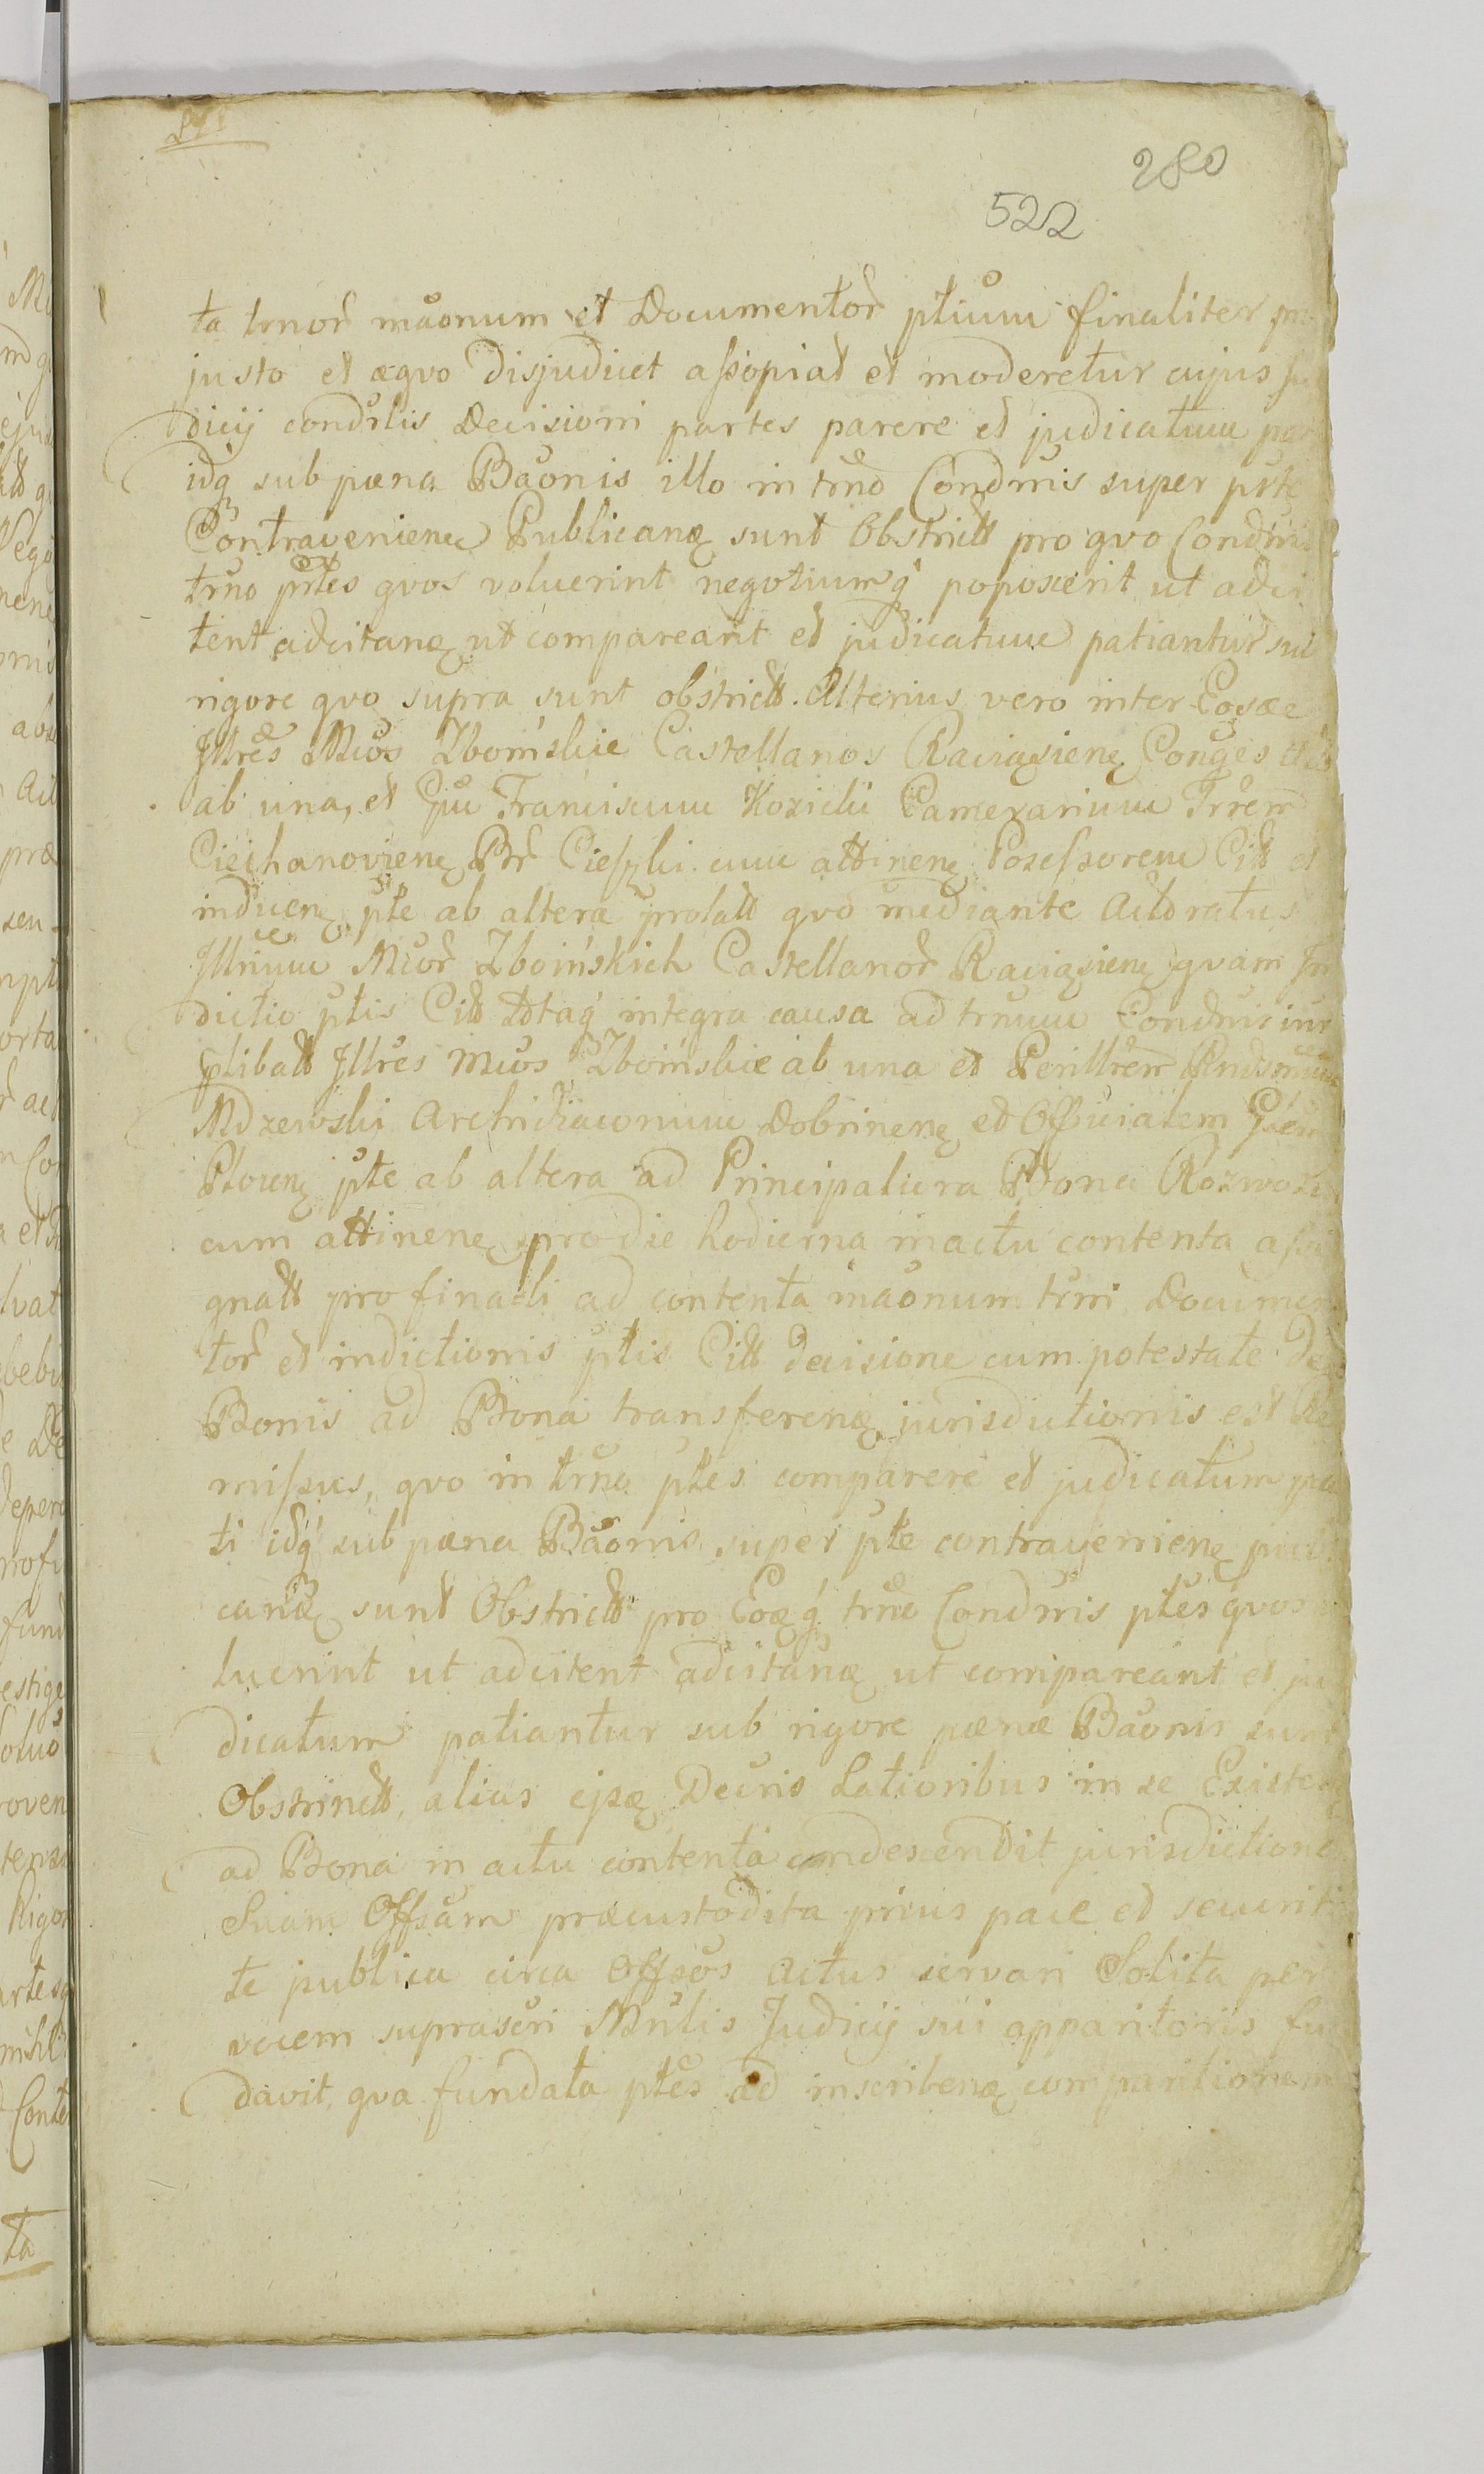 280
522
ta trnor maonum et Documentor ptium finaliter
justo et æqvo disjudicet assopiat et moderetur cujus
dicij condrlis Decisioni partes parere et judicatum
idq sub pæna Baonis illo in trno Condmis super prte
Contravenienę Publicanę sunt Obstrictt pro qvo Condmis
trno prtes qvos voluerint negotiumq poposcerit ut adci
tent adcitanę ut compareant et judicatum patiantur sub
rigore qvo supra sunt obstrictt. Alterius vero inter Eosæ
Illres Mcos Zboinskie Castellanos Raciązienę Conges
ab una, et Franciscum Kozicki Camerarium Trrem
Ciechanovienę Br Cieszki cum attinenę Possessorem Citt et
inducenę pte ab altera prolatt qvo mediante Actoratus
Illrium Mcor Zboińskich Castellanor Raciązienę qvam In
dictio ptis Citt ttotaq integra causa ad trnum Condmis inr
ptibatt Illres Mcos Zboinskie ab una et Perillrem Rndsmum
Mdzewski Archidiaconum Dobrinenę et Officialem
Plocenę pte ab altera ad Principaliora Bona Rozwozi
cum attinenę pro die hodierna in actu contenta assi
gnatt pro finali ad contenta maonum trni Documen
tor et indictionis ptis Citt decisione cum potestate de
Bonis ad Bona transferenę jurisdictionis est Re
missus, qvo in trno ptes comparere et judicatum pa
ti idq sub pæna Baonis super pte contravenienę publi
canę sunt Obstrictt pro Eoęq trno Condmis ptes qvos
luerint ut adcitent adcitanę ut compareant et ju
dicatum patiantur sub rigore pænæ Baonis sunt
Obstrinctt, alias ejsę Decris Lationibus in se Existen
ad Bona in actu contenta condescendit jurisdictione
Suam Offsam præcustodita prius pace et securita
te publica circa Offsos actus servari Solita per
vocem suprascri Mnlis Judicij sui apparitoris fu
davit, qva fundata ptes ad inscribenę comparitionem